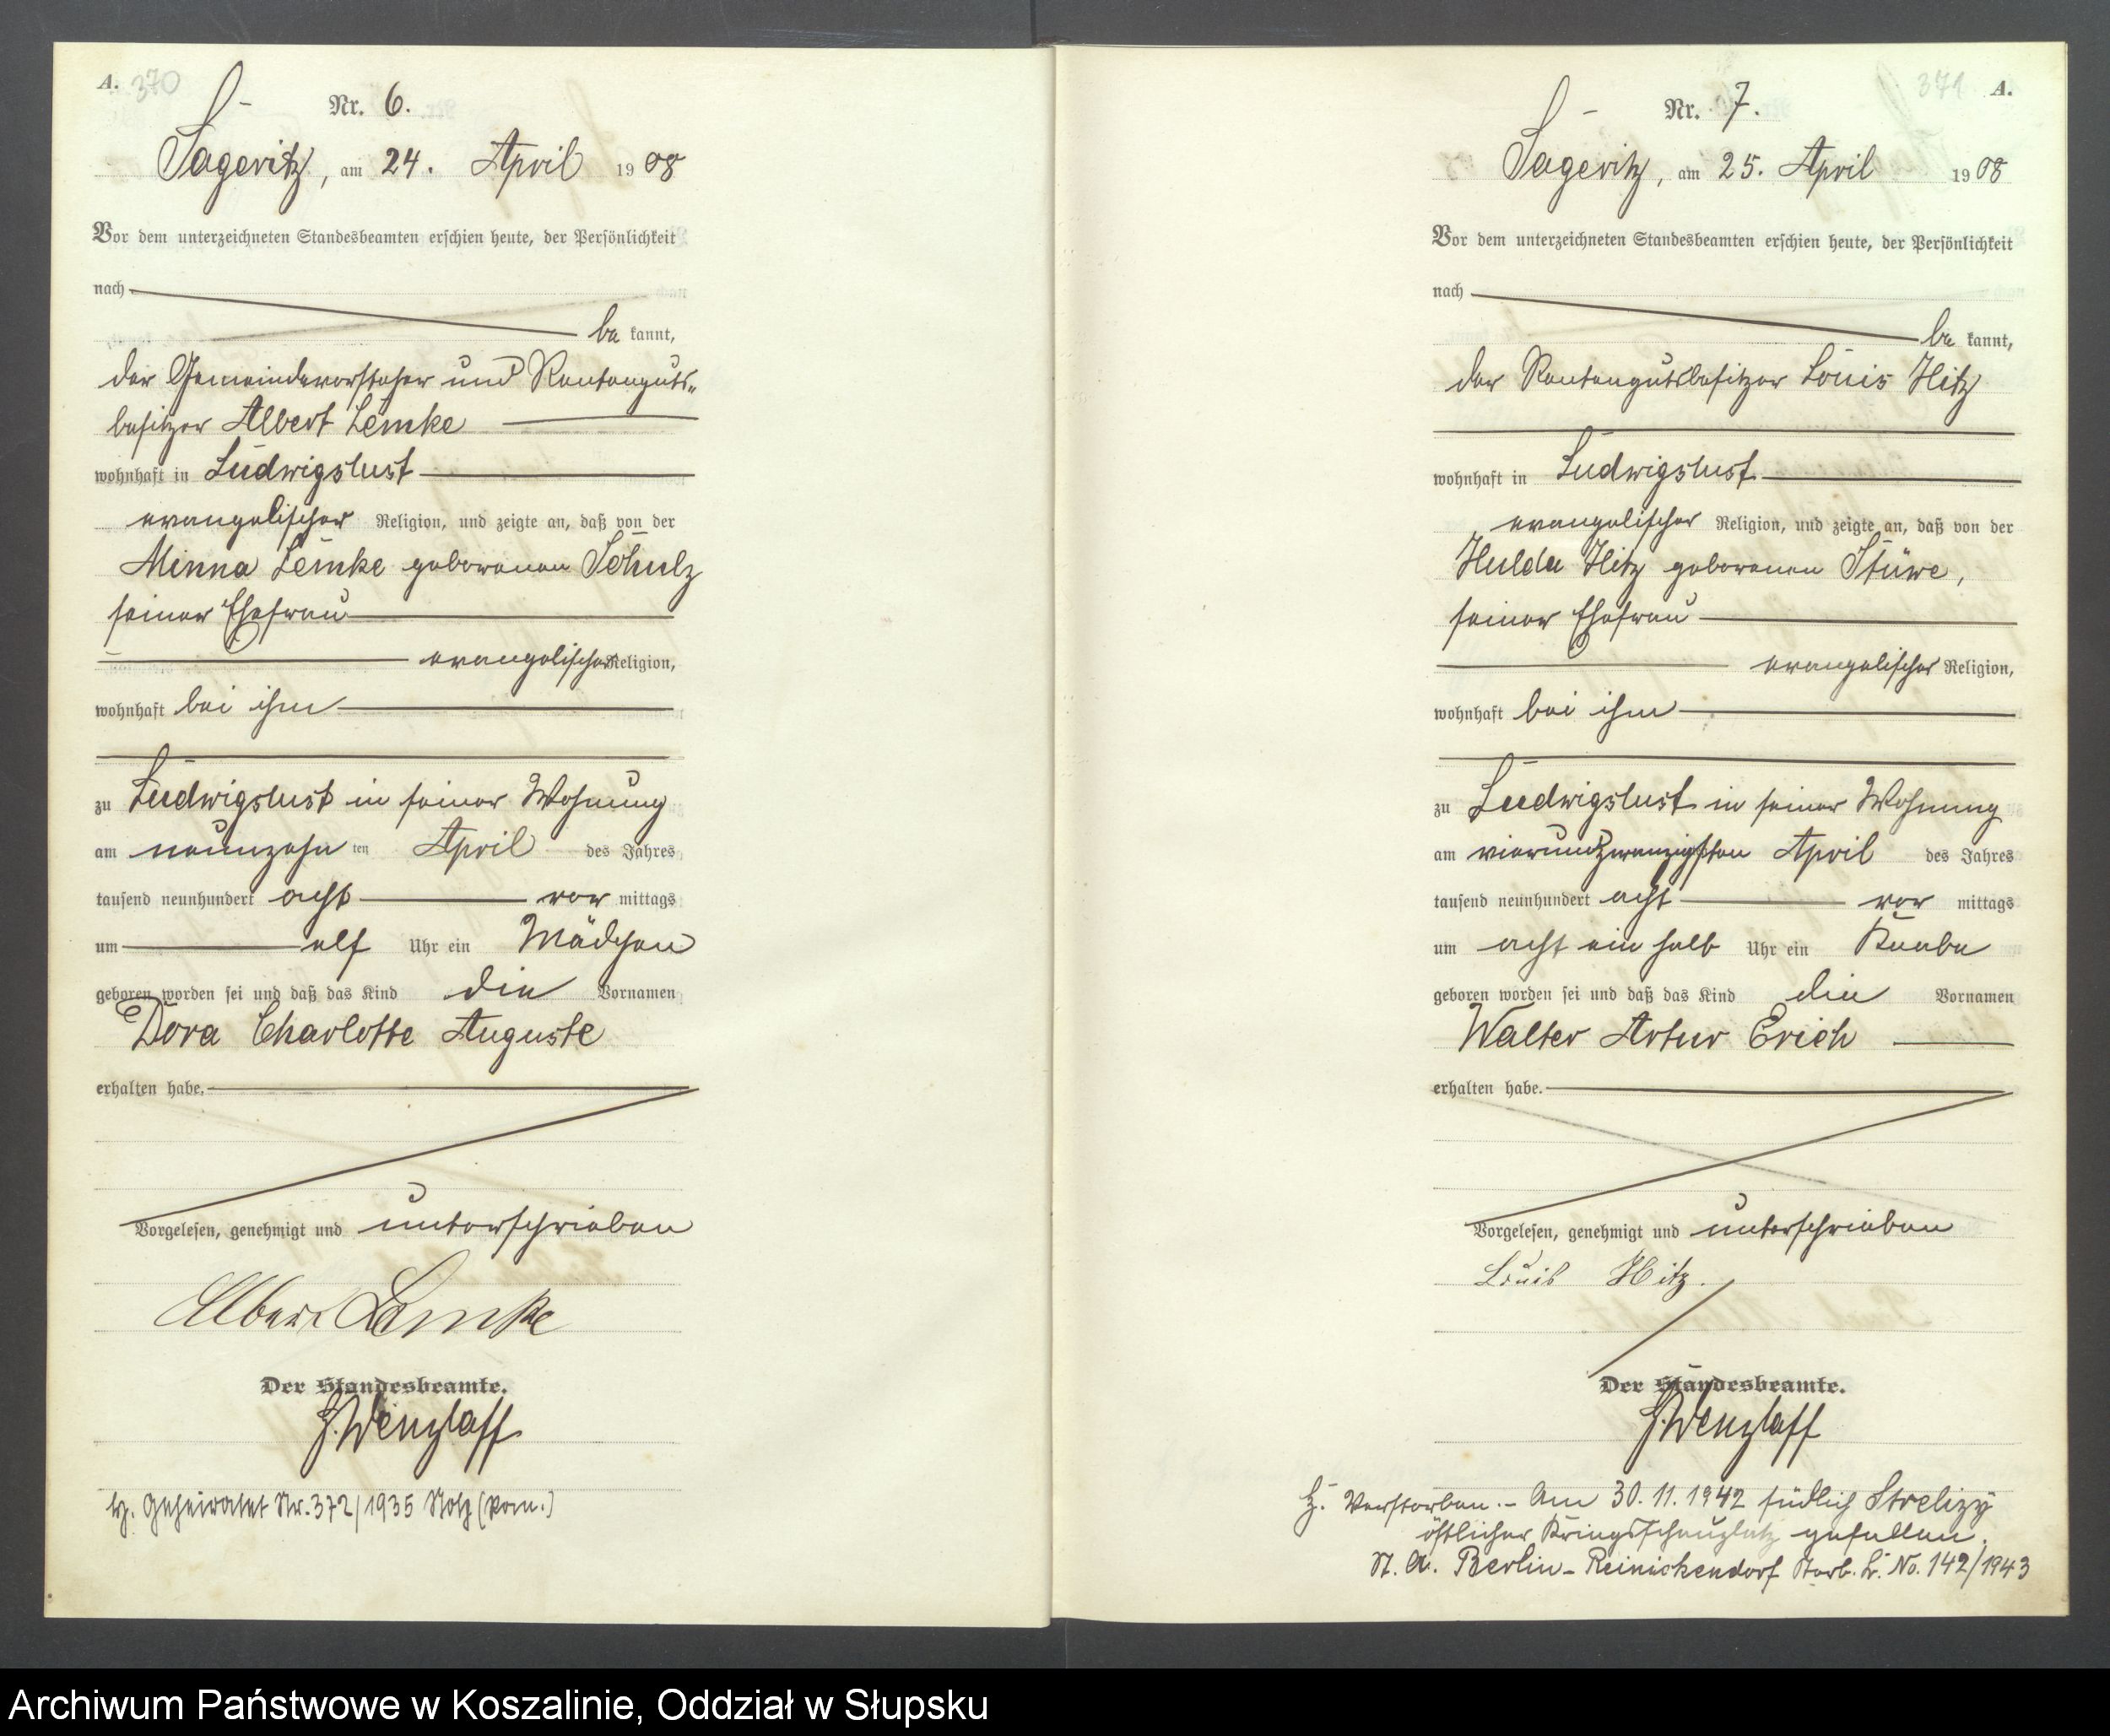 A. 370
Nr. 6.
Sageritz, am 24. April 1908
Vor dem unterzeichneten Standesbeamten erschien heute, der Persönlichkeit
nach
be kannt,
der Gemeindevorsteher und Rentenguts-
besitzer Albert Lemke
wohnhaft in Ludwigslust
evangelischer Religion, und zeigte an, daß von der
Minna Lemke geborenen Schulz
seiner Ehefrau
evangelischer Religion,
wohnhaft bei ihm
zu Ludwigslust in seiner Wohnung
am neunzehn ten April des Jahres
tausend neunhundert acht vor mittags
um elf Uhr ein Mädchen
geboren worden sei und daß das Kind die Vornamen
Dora Charlotte Auguste
erhalten habe.
Vorgelesen, genehmigt und unterschrieben
Albert Lemke
Der Standesbeamte.
Wenzlaff
Geheiratet Nr. 372/1935 (Pom.)
371 A.
Nr. 7.
Sageritz, am 25. April 1908
Vor dem unterzeichneten Standesbeamten erschien heute, der Persönlichkeit
nach
be kannt,
der Rentengutsbesitzer Louis Hitz
wohnhaft in Ludwigslust
evangelischer Religion, und zeigte an, daß von der
Hulda Hitz geborenen Stüwe,
seiner Ehefrau
evangelischer Religion,
wohnhaft bei ihm
zu Ludwigslust in seiner Wohnung
am vierundzwanzigsten April des Jahres
tausend neunhundert acht vor mittags
um acht ein halb Uhr ein Knabe
geboren worden sei und daß das Kind die Vornamen
Walter Artur Erich
erhalten habe.
Vorgelesen, genehmigt und unterschrieben
Louis Hitz.
Der Standesbeamte.
Wenzlaff
Verstorben. - Am 30.11.1942 südlich Strelizy
östlicher Kriegsschauplatz gefallen.
St. A. Berlin-Reinickendorf Sterb. No. 142/1943
Archiwum Państwowe w Koszalinie, Oddział w Słupsku